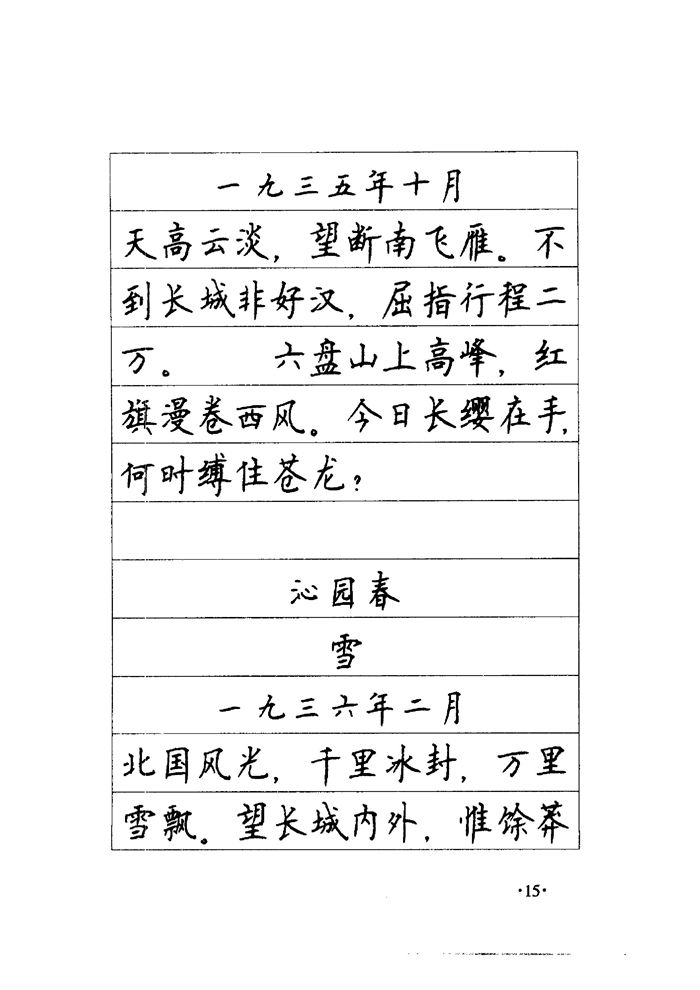 一九三五年十月
天高云淡，望断南飞雁。不
到长城非好汉，屈指行程二
万。　　六盘山上高峰，红
旗漫卷西风。今日长缨在手，
何时缚住苍龙？
沁园春
雪
一九三六年二月
北国风光，千里冰封，万里
雪飘。望长城内外，惟馀莽
·15·